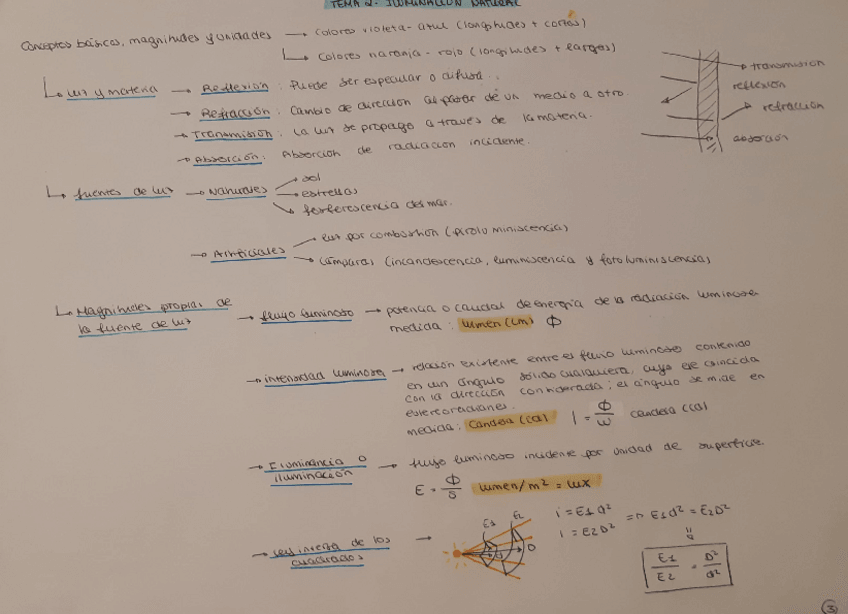 TEMA 2. ILUMINACIÓN NATURAL
Conceptos básicos, magnitudes y unidades → colores violeta - azul (longitudes + cortas)
→ colores naranja - rojo (longitudes + largas)
→ luz y materia → Reflexión: Puede ser especular o difusa.
→ Refracción: Cambio de dirección al pasar de un medio a otro
→ Transmisión: La luz se propaga a través de la materia.
→ Absorción: Absorción de radiación incidente.
transmisión
reflexión
refracción
absorción
→ fuentes de luz → Naturales
sol
estrellas
del mar.
→ Artificiales
luz por combustión
lámparas (incandescencia, luminiscencia y fotoluminiscencia)
→ Magnitudes propias de
la fuente de luz
→ flujo luminoso → potencia o caudal de energía de la radiación luminosa
medida: lumen (lm) Φ
→ intensidad luminosa → relación existente entre el flujo luminoso contenido
en un ángulo sólido cualquiera, cuyo eje coincida
con la dirección considerada; el ángulo se mide en
estereoradianes.
medida: candela (cd) I = Φ/ω candela (cd)
→ Iluminancia o
iluminación
→ flujo luminoso incidente por unidad de superficie
E = Φ/S lumen/m² = lux
→ Ley inversa de los
cuadrados →
E1 E2
d D
i = E1 d²
i = E2 D²
⇒ E1 d² = E2 D²
E1/E2 = D²/d²
3